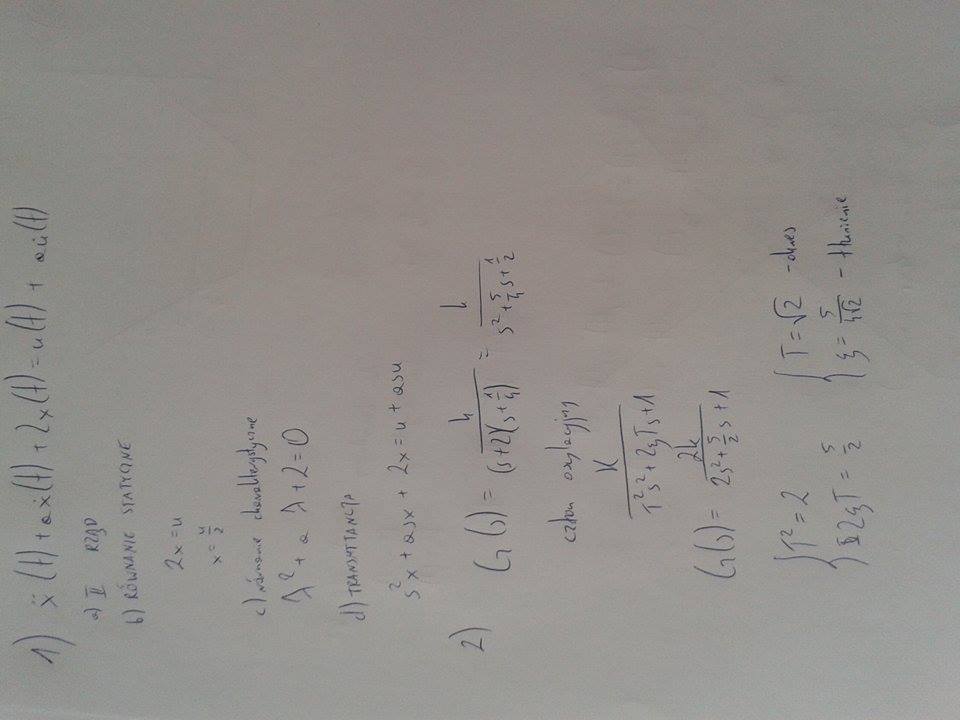 1) ẍ(t) + aẋ(t) + 2x(t) = u(t) + au̇(t)
a) II RZĄD
b) RÓWNANIE STATYCZNE
2x = u
x = u/2
c) równanie charakterystyczne
λ² + a λ + 2 = 0
d) TRANSMITANCJA
s²x + asx + 2x = u + asu
2) G(s) = k/((s+2)(s+1/4)) = k/(s² + 5/4 s + 1/2)
człon oscylacyjny
K/(T²s² + 2ξTs + 1)
G(s) = 2k/(2s² + 5/2 s + 1)
{ T² = 2 { T = √2 - okres
2ξT = 5/2 ξ = 5/(4√2) - tłumienie